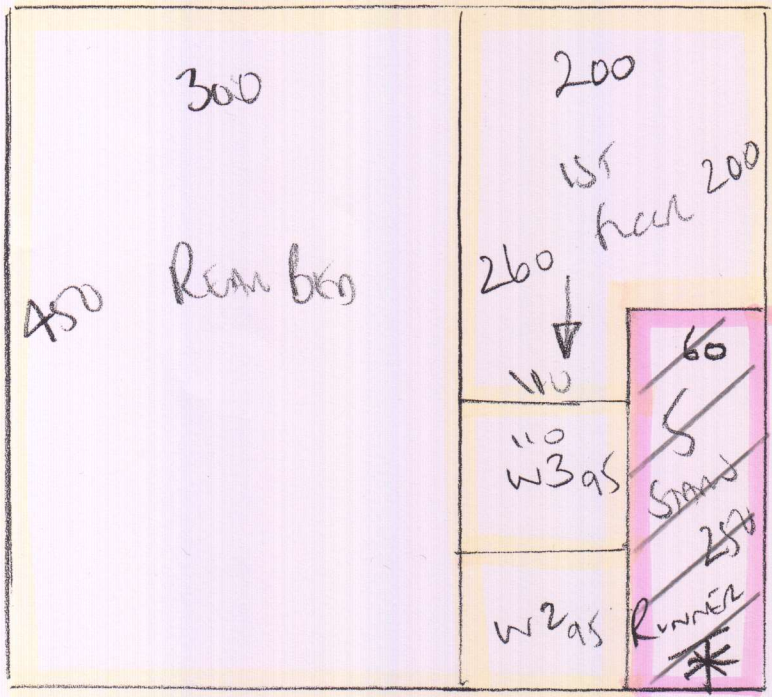 300
450 REAR BED
200
1ST
FLOOR 200
260
110
110
W3 95
W2 95
60
5
STAIRS
250
RUNNER
*